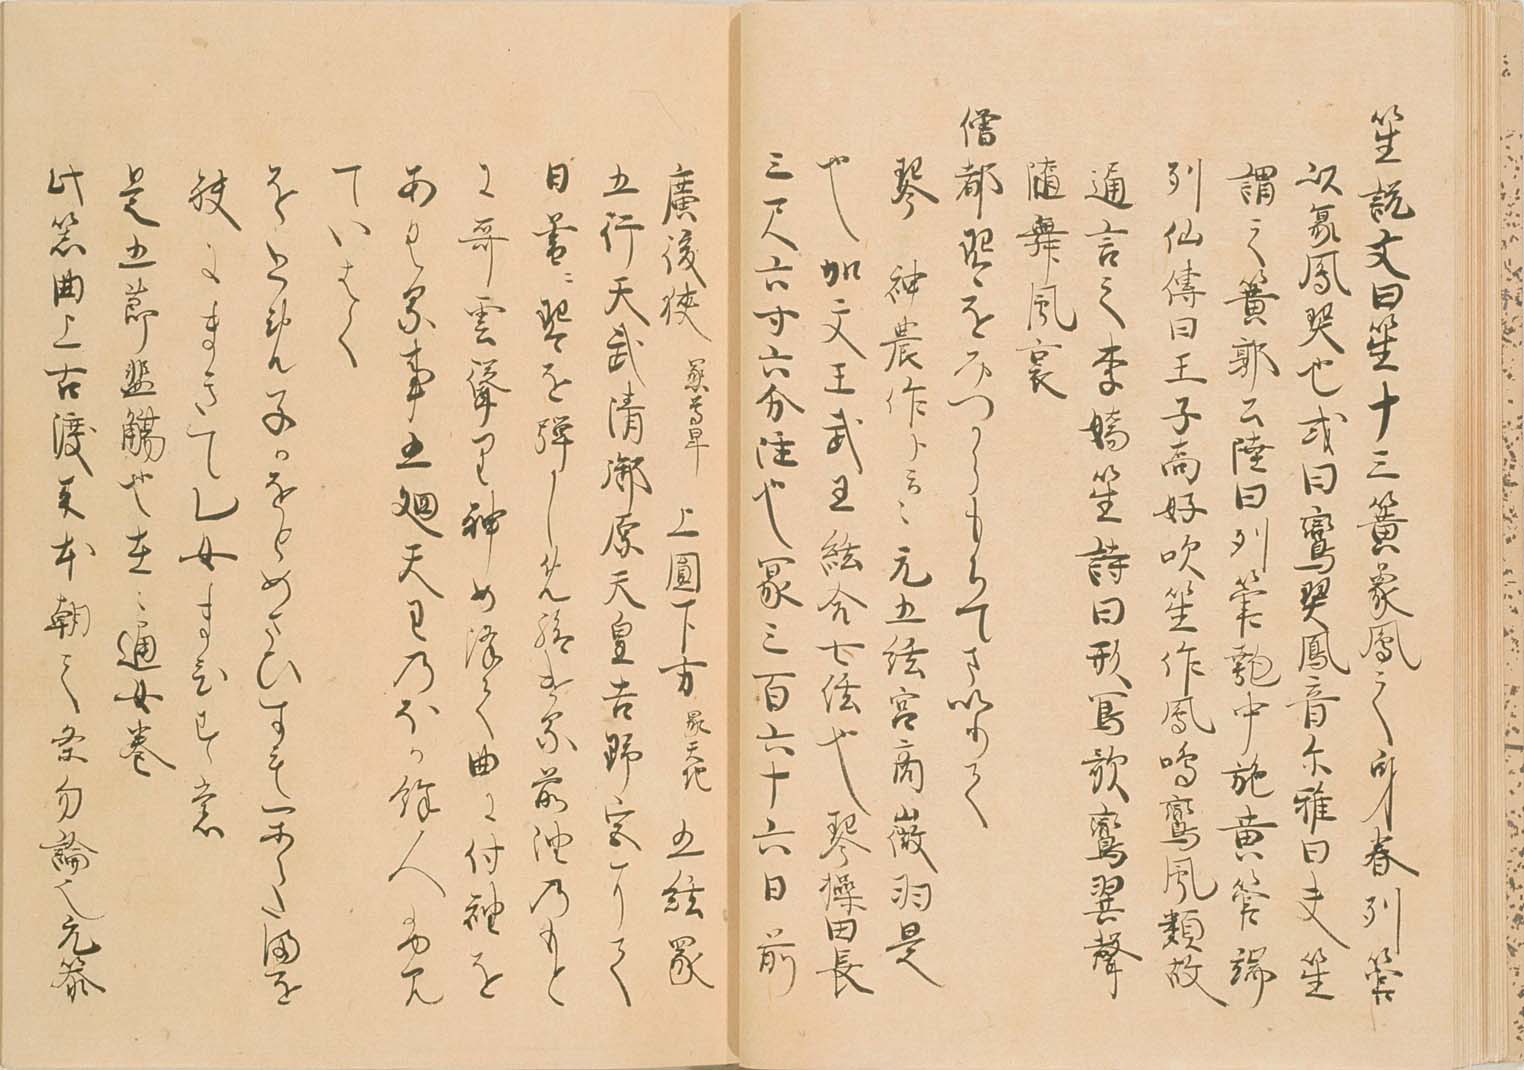 笙説文曰笙十三簧象鳳之身春列管
以象鳳翼也或曰鸞翼鳳音尓雅曰大笙
謂之簧郭云陸曰列管匏中施黄管端
列仙傳曰王子喬好吹笙作鳳鳴鸞鳳類故
通言之李嬌笙詩曰形寫歌鸞翼聲
随舞鳳哀
僧都琴をみつからもちてまいりて
琴 神農作ト云々元五絃宮商徴羽是
也加文王武王絃合七絃也琴操曰長
三尺六寸六分法也象三百六十六日前
廣後狭 象尊卑 上圓下方 象天地 五絃象
五行天武清御原天皇吉野宮にて
日暮ニ琴を弾し給前池のもと
に雲聳て神女降て曲に付袖を
あくる事五廻天の餘人みえ
ていはく
をとめ子かをとめさひすも可良多満を
袂にまきてし女まひせす
是五節濫觴也在ニ通女巻
此笛曲上古渡来本朝之条勿論也元